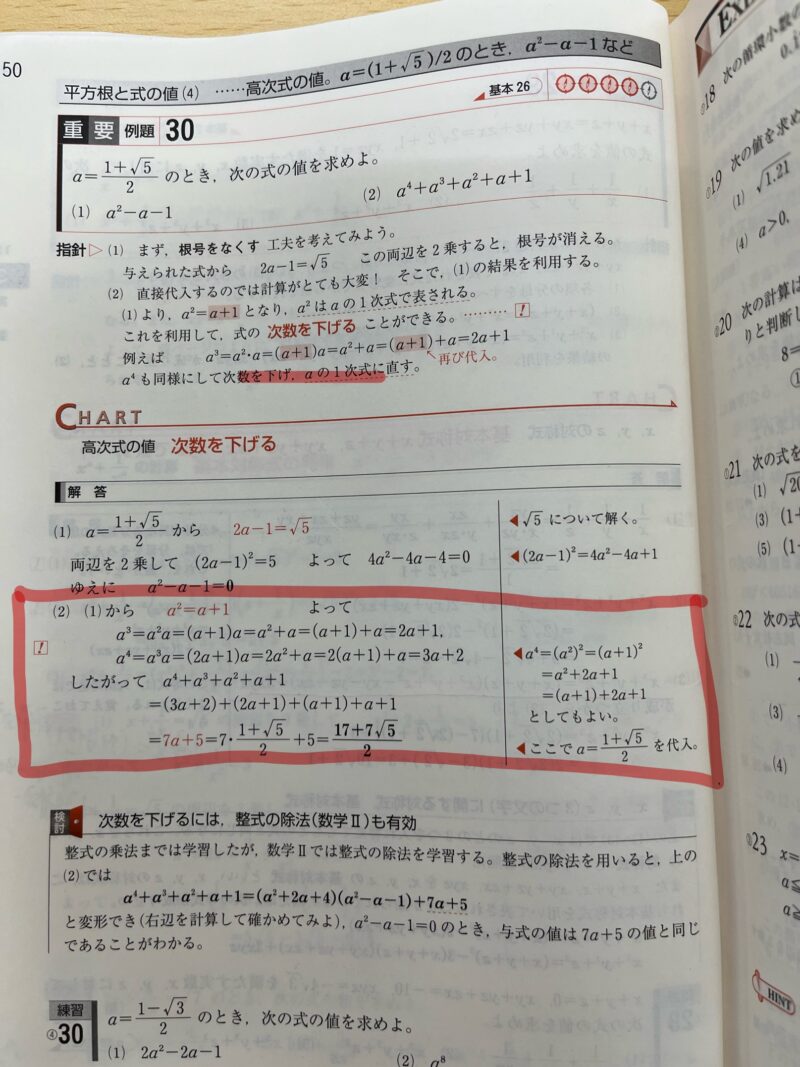 50
平方根と式の値(4) ……高次式の値。a=(1+√5)/2のとき，a²−a−1など
重要 例題 30
基本 26
a=(1+√5)/2 のとき，次の式の値を求めよ。
(1) a²−a−1
(2) a⁴+a³+a²+a+1
指針▷(1) まず，根号をなくす 工夫を考えてみよう。
与えられた式から 2a−1=√5 この両辺を2乗すると，根号が消える。
(2) 直接代入するのでは計算がとても大変！ そこで，(1)の結果を利用する。
(1)より，a²=a+1 となり，a²はaの1次式で表される。
これを利用して，式の 次数を下げる ことができる。………!
例えば a³=a²・a=(a+1)a=a²+a=(a+1)+a=2a+1
再び代入。
a⁴も同様にして次数を下げ，aの1次式に直す。
CHART
高次式の値 次数を下げる
解答
(1) a=(1+√5)/2 から 2a−1=√5
◀√5 について解く。
両辺を2乗して (2a−1)²=5 よって 4a²−4a−4=0
◀(2a−1)²=4a²−4a+1
ゆえに a²−a−1=0
(2) (1)から a²=a+1 よって
a³=a²a=(a+1)a=a²+a=(a+1)+a=2a+1,
!
a⁴=a³a=(2a+1)a=2a²+a=2(a+1)+a=3a+2
◀a⁴=(a²)²=(a+1)²
=a²+2a+1
=(a+1)+2a+1
としてもよい。
したがって a⁴+a³+a²+a+1
=(3a+2)+(2a+1)+(a+1)+a+1
=7a+5=7・(1+√5)/2+5=(17+7√5)/2
◀ここでa=(1+√5)/2 を代入。
検討 次数を下げるには，整式の除法(数学Ⅱ)も有効
整式の乗法までは学習したが，数学Ⅱでは整式の除法を学習する。整式の除法を用いると，上の
(2)では
a⁴+a³+a²+a+1=(a²+2a+4)(a²−a−1)+7a+5
と変形でき(右辺を計算して確かめてみよ)，a²−a−1=0のとき，与式の値は7a+5の値と同じ
であることがわかる。
練習
④30
a=(1−√3)/2 のとき，次の式の値を求めよ。
(1) 2a²−2a−1
(2) a⁸
18 次の循環小数の
19 次の値を求め
(1) √1.21
(4) a>0,
20 次の計算は
りと判断し
8=
21 次の式を
(1)
(3) (1+
(5) (1+
22 次の式
(1)
(3)
(4)
23 x=
HINT